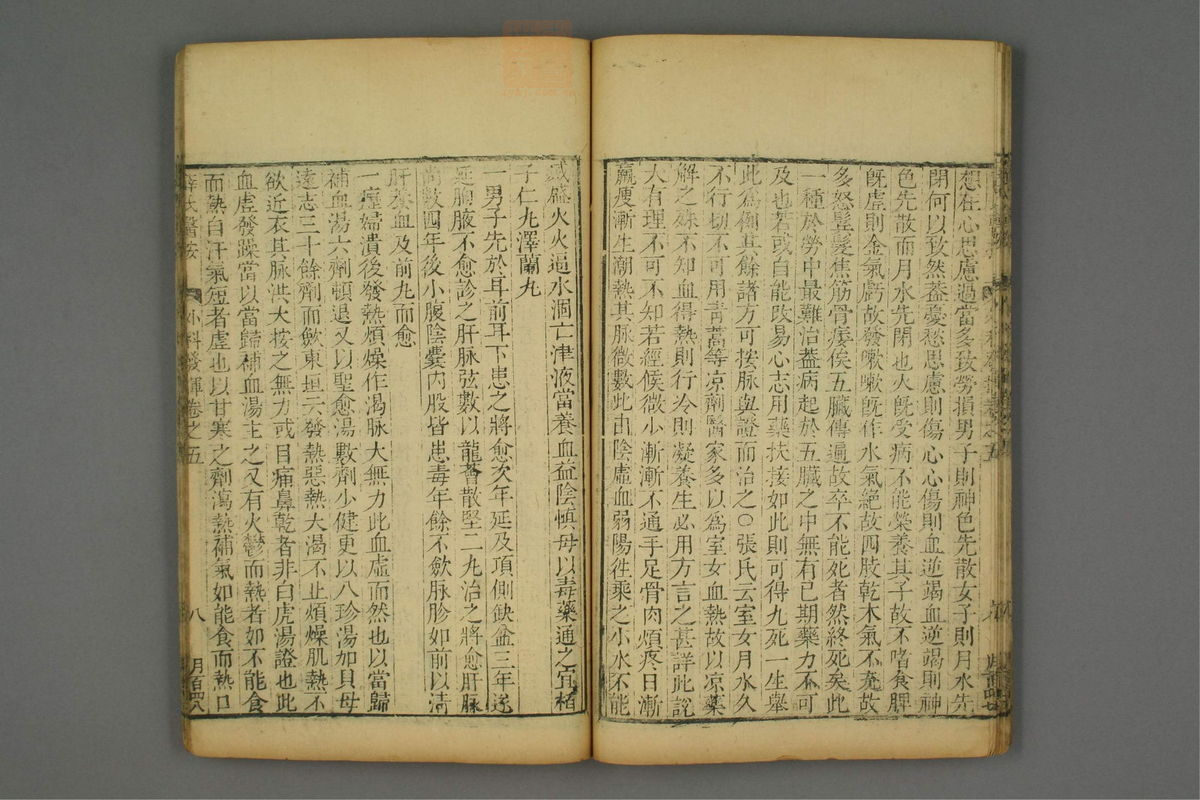 想在心思慮過當多致勞損男子則神色先散女子則月水先
閉何以致然葢憂愁思慮則傷心心傷則血逆竭血逆竭則神
色先散而月水先閉也火既受病不能榮養其子故不嗜食脾
既虛則金氣虧故發嗽嗽既作水氣絕故四肢乾木氣不充故
多怒鬂髮焦筋骨痿俟五臟傳遍故卒不能死者然終死矣此
一種於勞中最難治葢病起於五臟之中無有已期藥力不可
及也若或自能改易心志用藥扶接如此則可得九死一生舉
此為例其餘諸方可按脉與證而治之○張氏云室女月水久
不行切不可用青蒿等凉劑醫家多以為室女血熱故以凉藥
解之殊不知血得熱則行冷則凝養生必用方言之甚詳此說
大有理不可不知若經候微少漸漸不通手足骨肉煩疼日漸
羸瘦漸生潮熱其脉微數此由陰虛血弱陽徃乘之小水不能
滅盛火火逼水涸亡津液當養血益陰慎毋以毒藥通之宜柏
子仁丸澤蘭丸
一男子先於耳前耳下患之將愈次年延及項側缺盆三年遂
延胸腋不愈診之肝脉弦數以龍薈散堅二丸治之將愈肝脉
尚數四年後小腹陰囊內股皆患毒年餘不斂脉胗如前以清
肝養血及前丸而愈
一瘞婦潰後發熱煩燥作渴脉大無力此血虛而然也以當歸
補血湯六劑頓退又以聖愈湯數劑少健更以八珍湯加貝母
遠志三十餘劑而斂東垣云發熱惡熱大渴不止煩燥肌熱不
欲近衣其脉洪大按之無力或目痛鼻乾者非白虎湯證也此
血虛發躁當以當歸補血湯主之又有火鬱而熱者如不能食
而熱自汗氣短者虛也以甘寒之劑瀉熱補氣如能食而熱口
薛氏醫按
外科發揮卷之五
八
月百四八